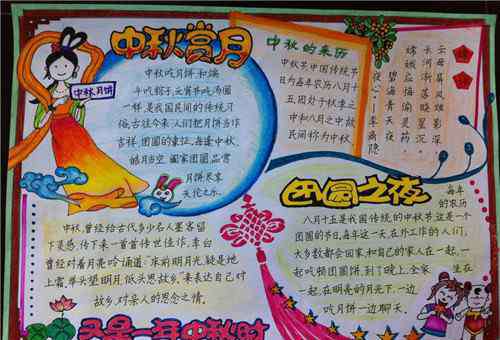 中秋赏月
中秋月饼
中秋吃月饼和端
午吃粽子、元宵节吃汤圆
一样,是我国民间的传统习
俗。古往今来,人们把月饼当作
吉祥、团圆的象征。每逢中秋,
皓月当空,阖家团圆,品赏
月饼,尽享
天伦之乐。
中秋的来历
中秋节,中国传统节
日,为每年农历八月十
五,因处于秋季之
中和八月之中,故
民间称为中秋
云母屏风烛影深
长河渐落晓星沉
嫦娥应悔偷灵药,
碧海青天夜
夜心。——李商隐
团圆之夜
每年
的农历
八月十五是我国传统的中秋节,这是一个
团圆的节日,每年这一天,在外工作的人们,
大多数都会回家,和自己的家人在一起,一
起吃顿团圆饭,到了晚上,全家坐在一
起,在明亮的月光下,一边
吃月饼一边聊天。
中秋,曾经给古代多少名人墨客留
下灵感,传下来一首首传世佳作,李白
曾经对着月亮吟诵道:“床前明月光,疑是地
上霜,举头望明月,低头思故乡。”来表达自己对
故乡,对亲人的思念之情。
又是一年中秋时